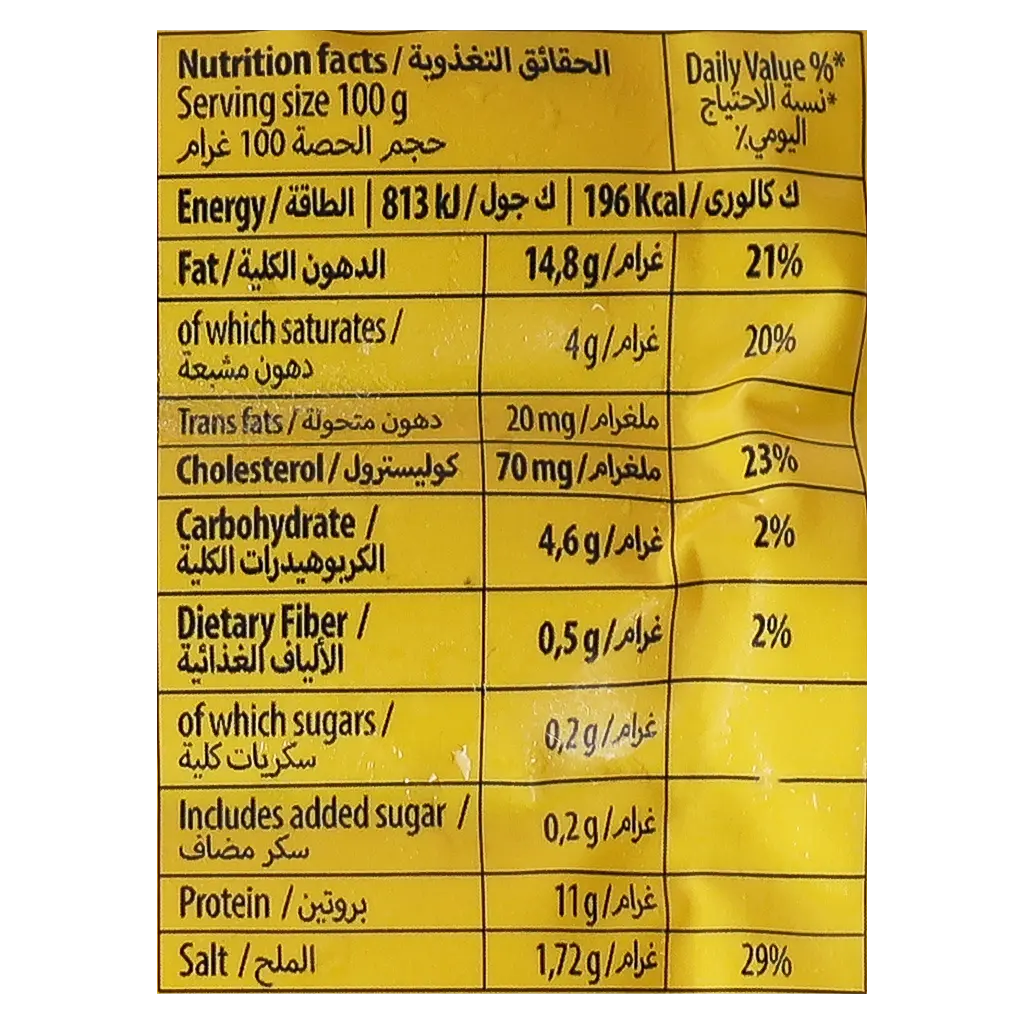 Nutrition facts / الحقائق التغذوية
Serving size 100 g
حجم الحصة 100 غرام
Daily Value %*
*نسبة الاحتياج
اليومي٪
Energy / الطاقة | 813 kJ / ك جول | 196 Kcal / ك كالورى
Fat / الدهون الكلية 14,8 g / غرام 21%
of which saturates /
دهون مشبعة
4 g / غرام 20%
Trans fats / دهون متحولة 20 mg / ملغرام
Cholesterol / كوليسترول 70 mg / ملغرام 23%
Carbohydrate /
الكربوهيدرات الكلية
4,6 g / غرام 2%
Dietary Fiber /
الألياف الغذائية
0,5 g / غرام 2%
of which sugars /
سكريات كلية
0,2 g / غرام
Includes added sugar /
سكر مضاف
0,2 g / غرام
Protein / بروتين 11 g / غرام
Salt / الملح 1,72 g / غرام 29%